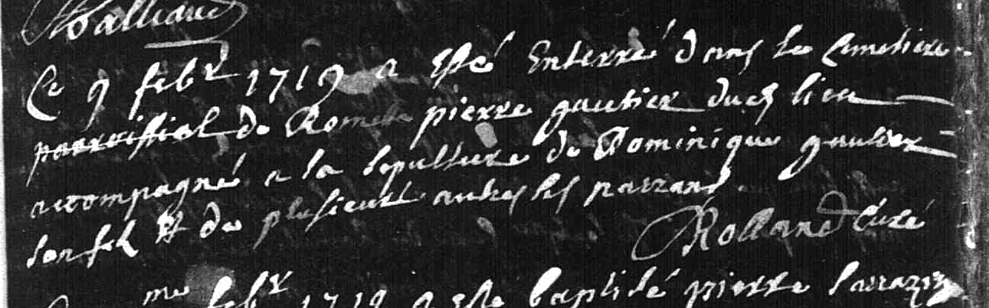 Ce 9 febr 1719 a esté Enterré dans le Cimetiere
parroissial de Romette pierre gautier dud lieu
accompagné a la sepulture de Dominique gautier
son fils et de plusieurs autres ses parrans
Rolland Curé
me febr 1719 a esté baptisé pierre Sarrazin